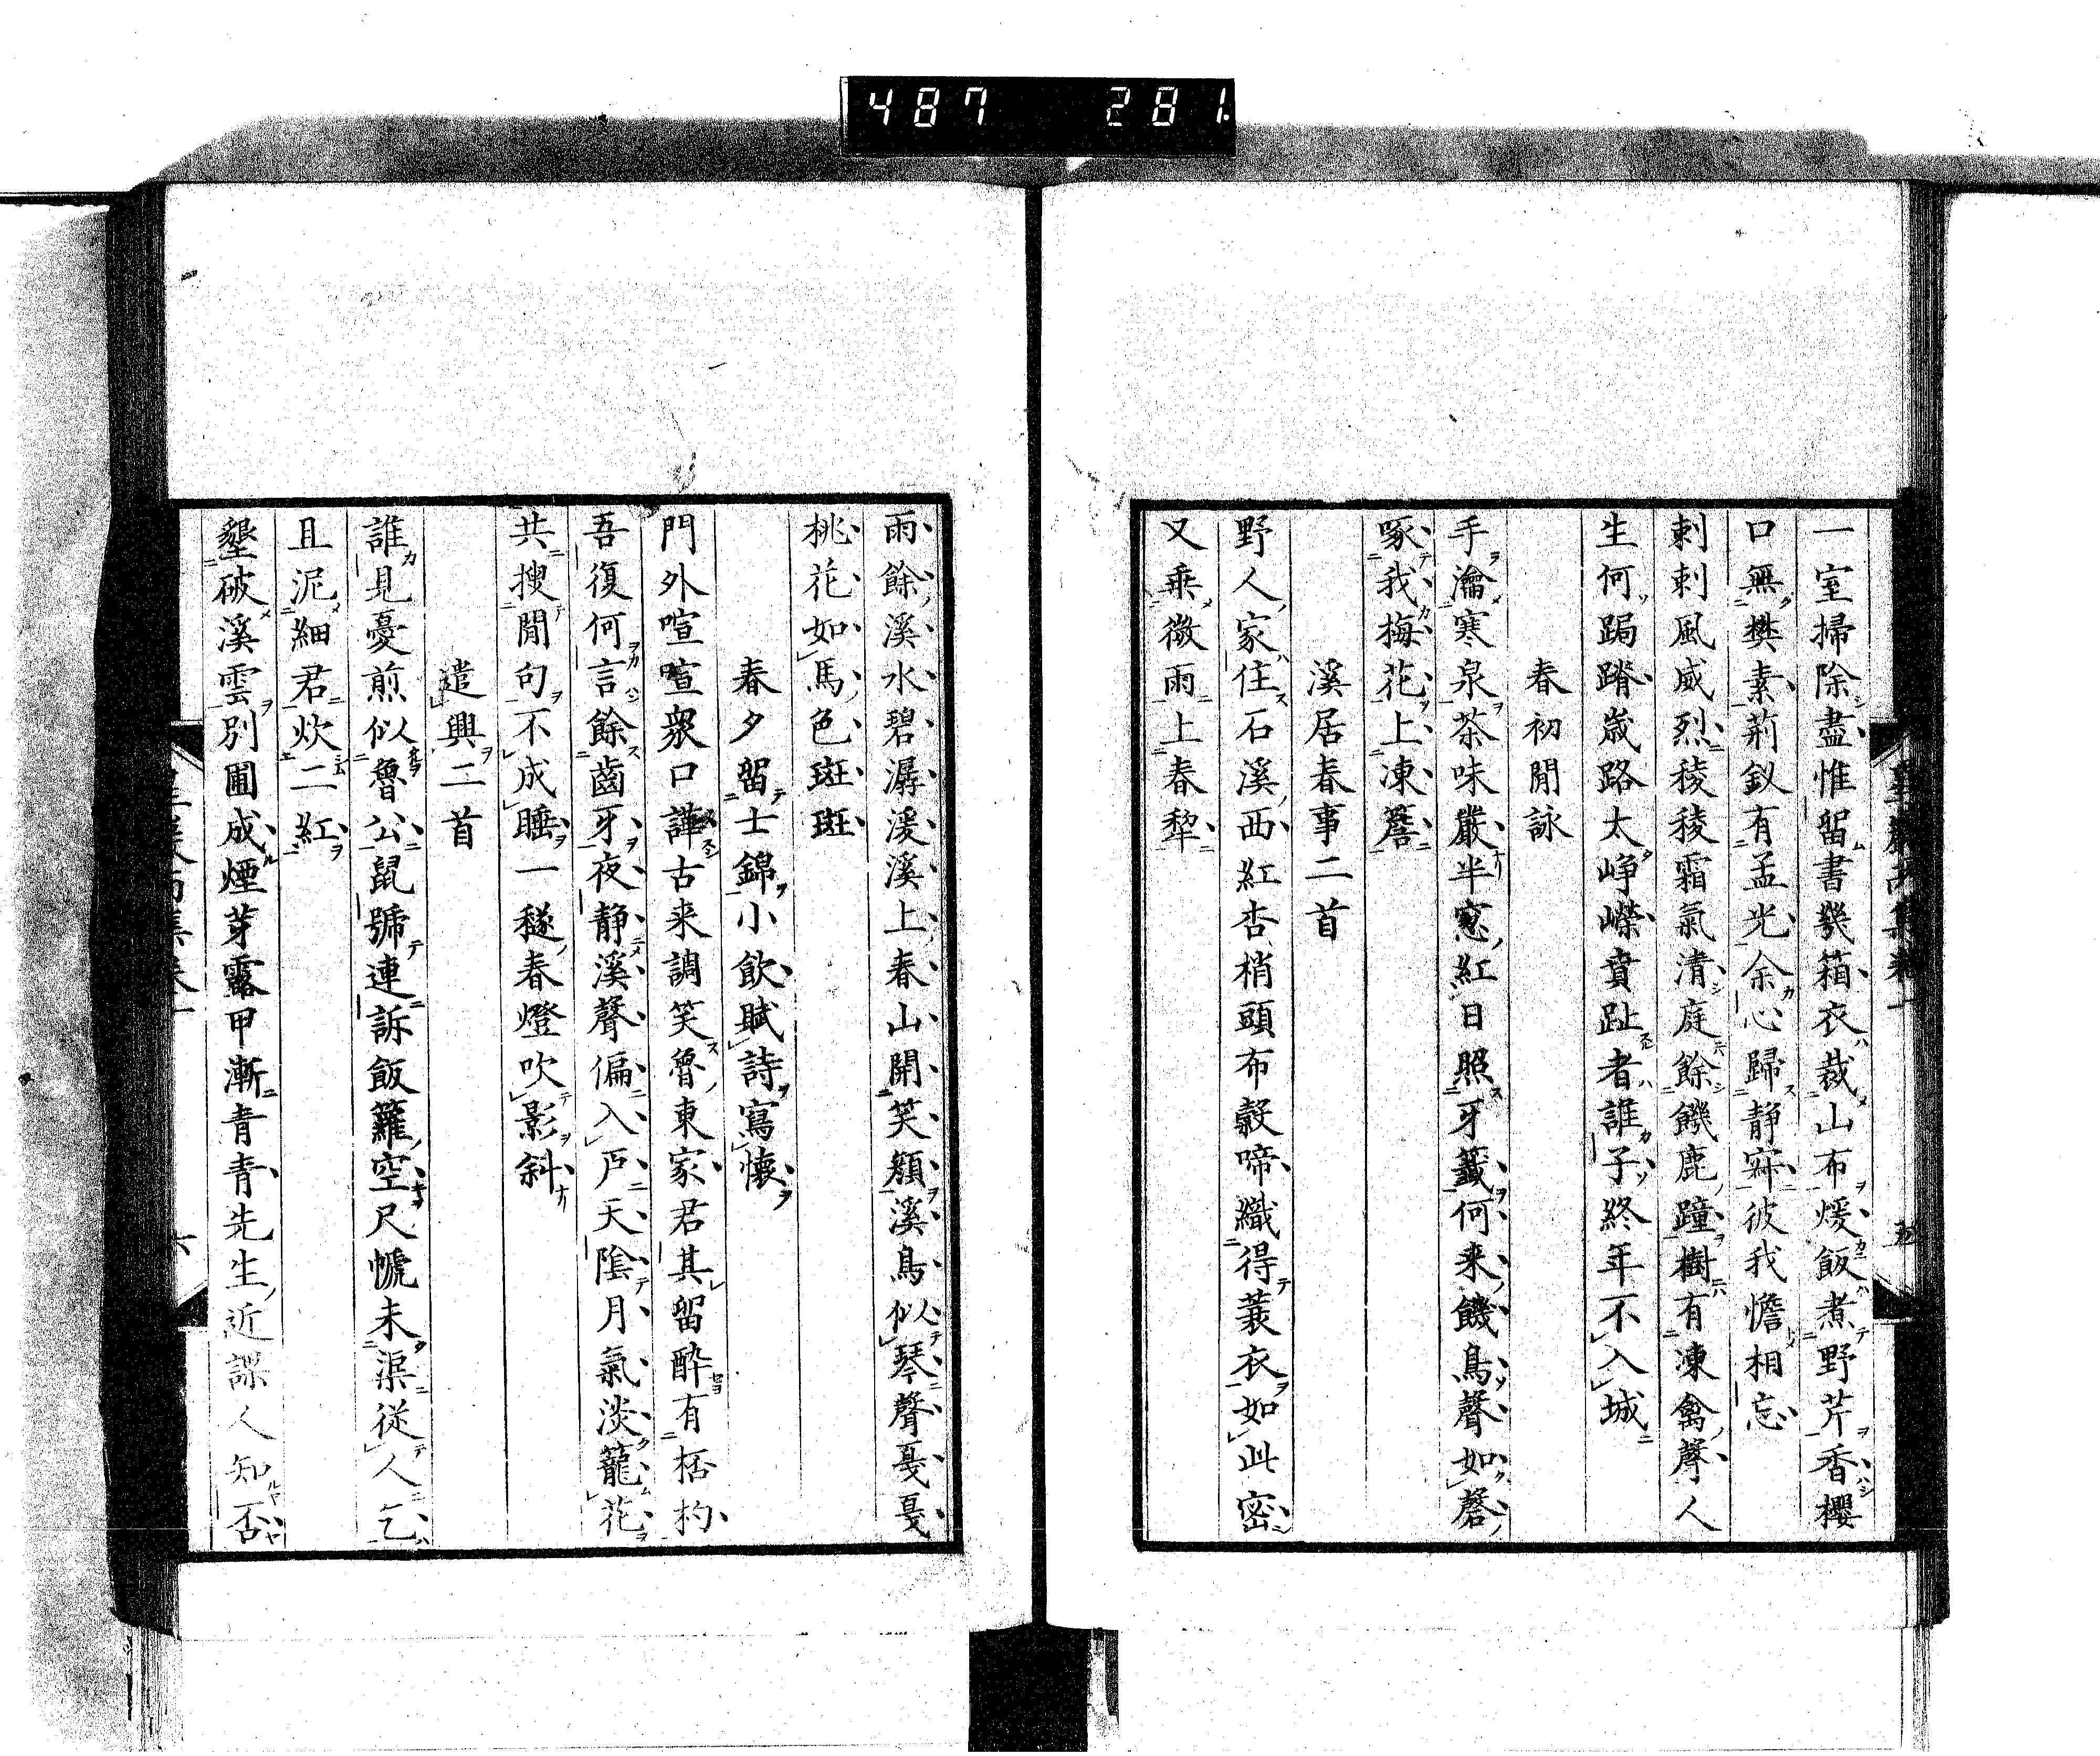 487 281
一室掃除盡惟留書幾箱衣裁山布煖飯煮野芹香櫻
口無樊素荊釵有孟光余心歸静寂彼我憺相忘
刺刺風威烈稜稜霜氣清庭餘饑鹿蹱樹有凍禽聲人
生何跼蹐歲路太崢嶸賁趾者誰子終年不入城
春初閒詠
手瀹寒泉茶味嚴半窓紅日照牙籤何来饑鳥聲如磬
啄我梅花上凍簷
溪居春事二首
野人家住石溪西紅杏梢頭布穀啼織得蓑衣如此密
又乗微雨上春犂
雨餘溪水碧潺湲溪上春山開笑顏溪鳥似琴聲戛戛
桃花如馬色斑斑
春夕留士錦小飲賦詩寫懷
門外喧喧衆口譁古来調笑魯東家君其留酔有桮杓
吾復何言餘齒牙夜静溪聲偏入戸天陰月氣淡籠花
共搜閒句不成睡一穟春燈吹影斜
遣興二首
誰見憂煎似魯公鼠號連訴飯籮空尺㡓未滆從人乞
且泥細君炊二紅
墾破溪雲別圃成煙芽露甲漸青青先生近課人知否
六